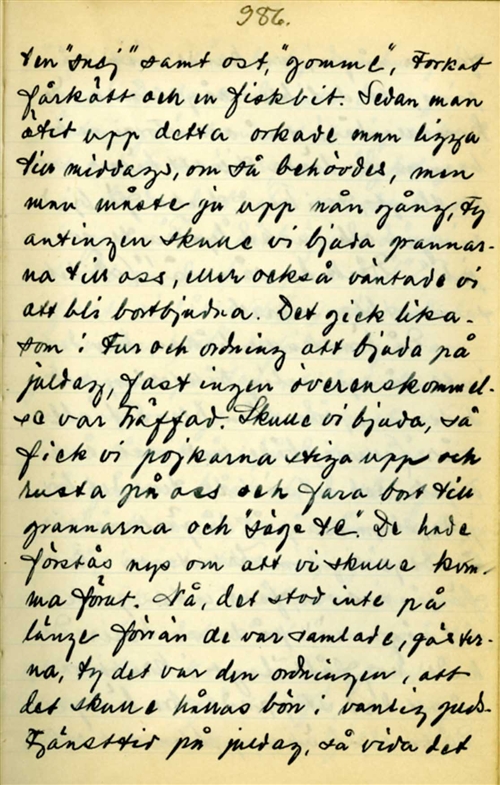 986.
ten "susj" samt ost, "gomme", torkat
fårkött och en fiskbit. Sedan man
ätit upp detta orkade man ligga
till middags, om så behövdes, men
man måste ju upp nån gång, ty
antingen skulle vi bjuda grannar-
na till oss, eller också väntade vi
att bli bortbjudna. Det gick lika-
som i tur och ordning att bjuda på
juldag, fast ingen överenskommel-
se var träffad. Skulle vi bjuda, så
fick vi pojkarna stiga upp och
rusta på oss och fara bort till
grannarna och "säge te". De hade
förstås nys om att vi skulle kom-
ma förut. Nå, det stod inte på
länge förrän de var samlade, gäster-
na, ty det var den ordningen, att
det skulle hållas bön i vanlig guds-
tjänsttid på juldag, så vida det